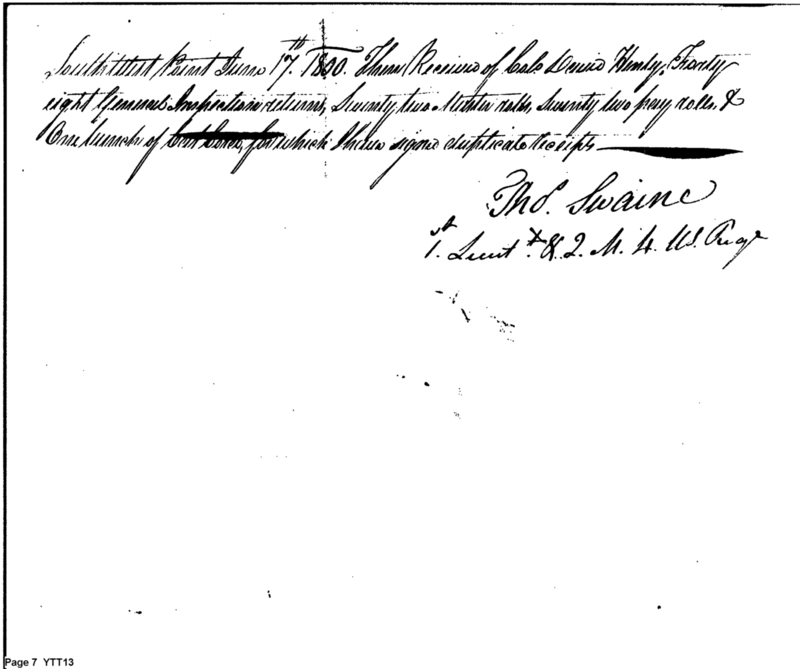 South West Point June 17th. 1800. I have Received of Colo David Henly, Fourty
eight General Inspection returns, Seventy two Muster rolls, seventy two pay rolls, &
One bunch of for which I have signed duplicate receipts
Thos. Swaine
1st. Lieut. & Q. M. 4. US. Regt
Page 7 YTT13